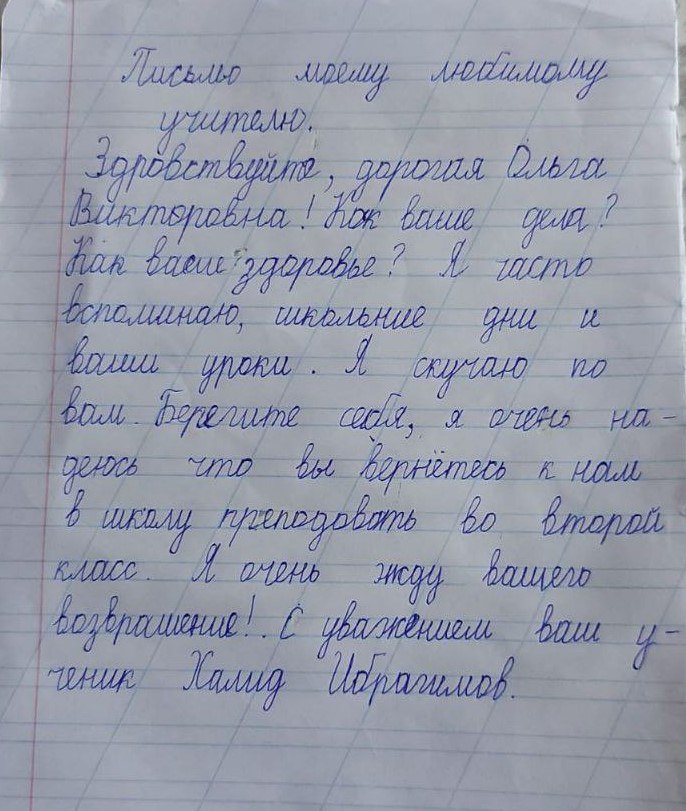 Письмо моему любимому
учителю.
Здровствуйте, дорогая Ольга
Викторовна! Как ваше дела?
Как ваше здоровье? Я часто
вспоминаю, школьние дни и
ваши уроки. Я скучаю по
вам. Берегите себя, я очень на-
деюсь что вы вернётесь к нам
в школу преподовать во второй
класс. Я очень жду вашего
возврашение!. С уважением ваш у-
ченик Халид Ибрагимов.